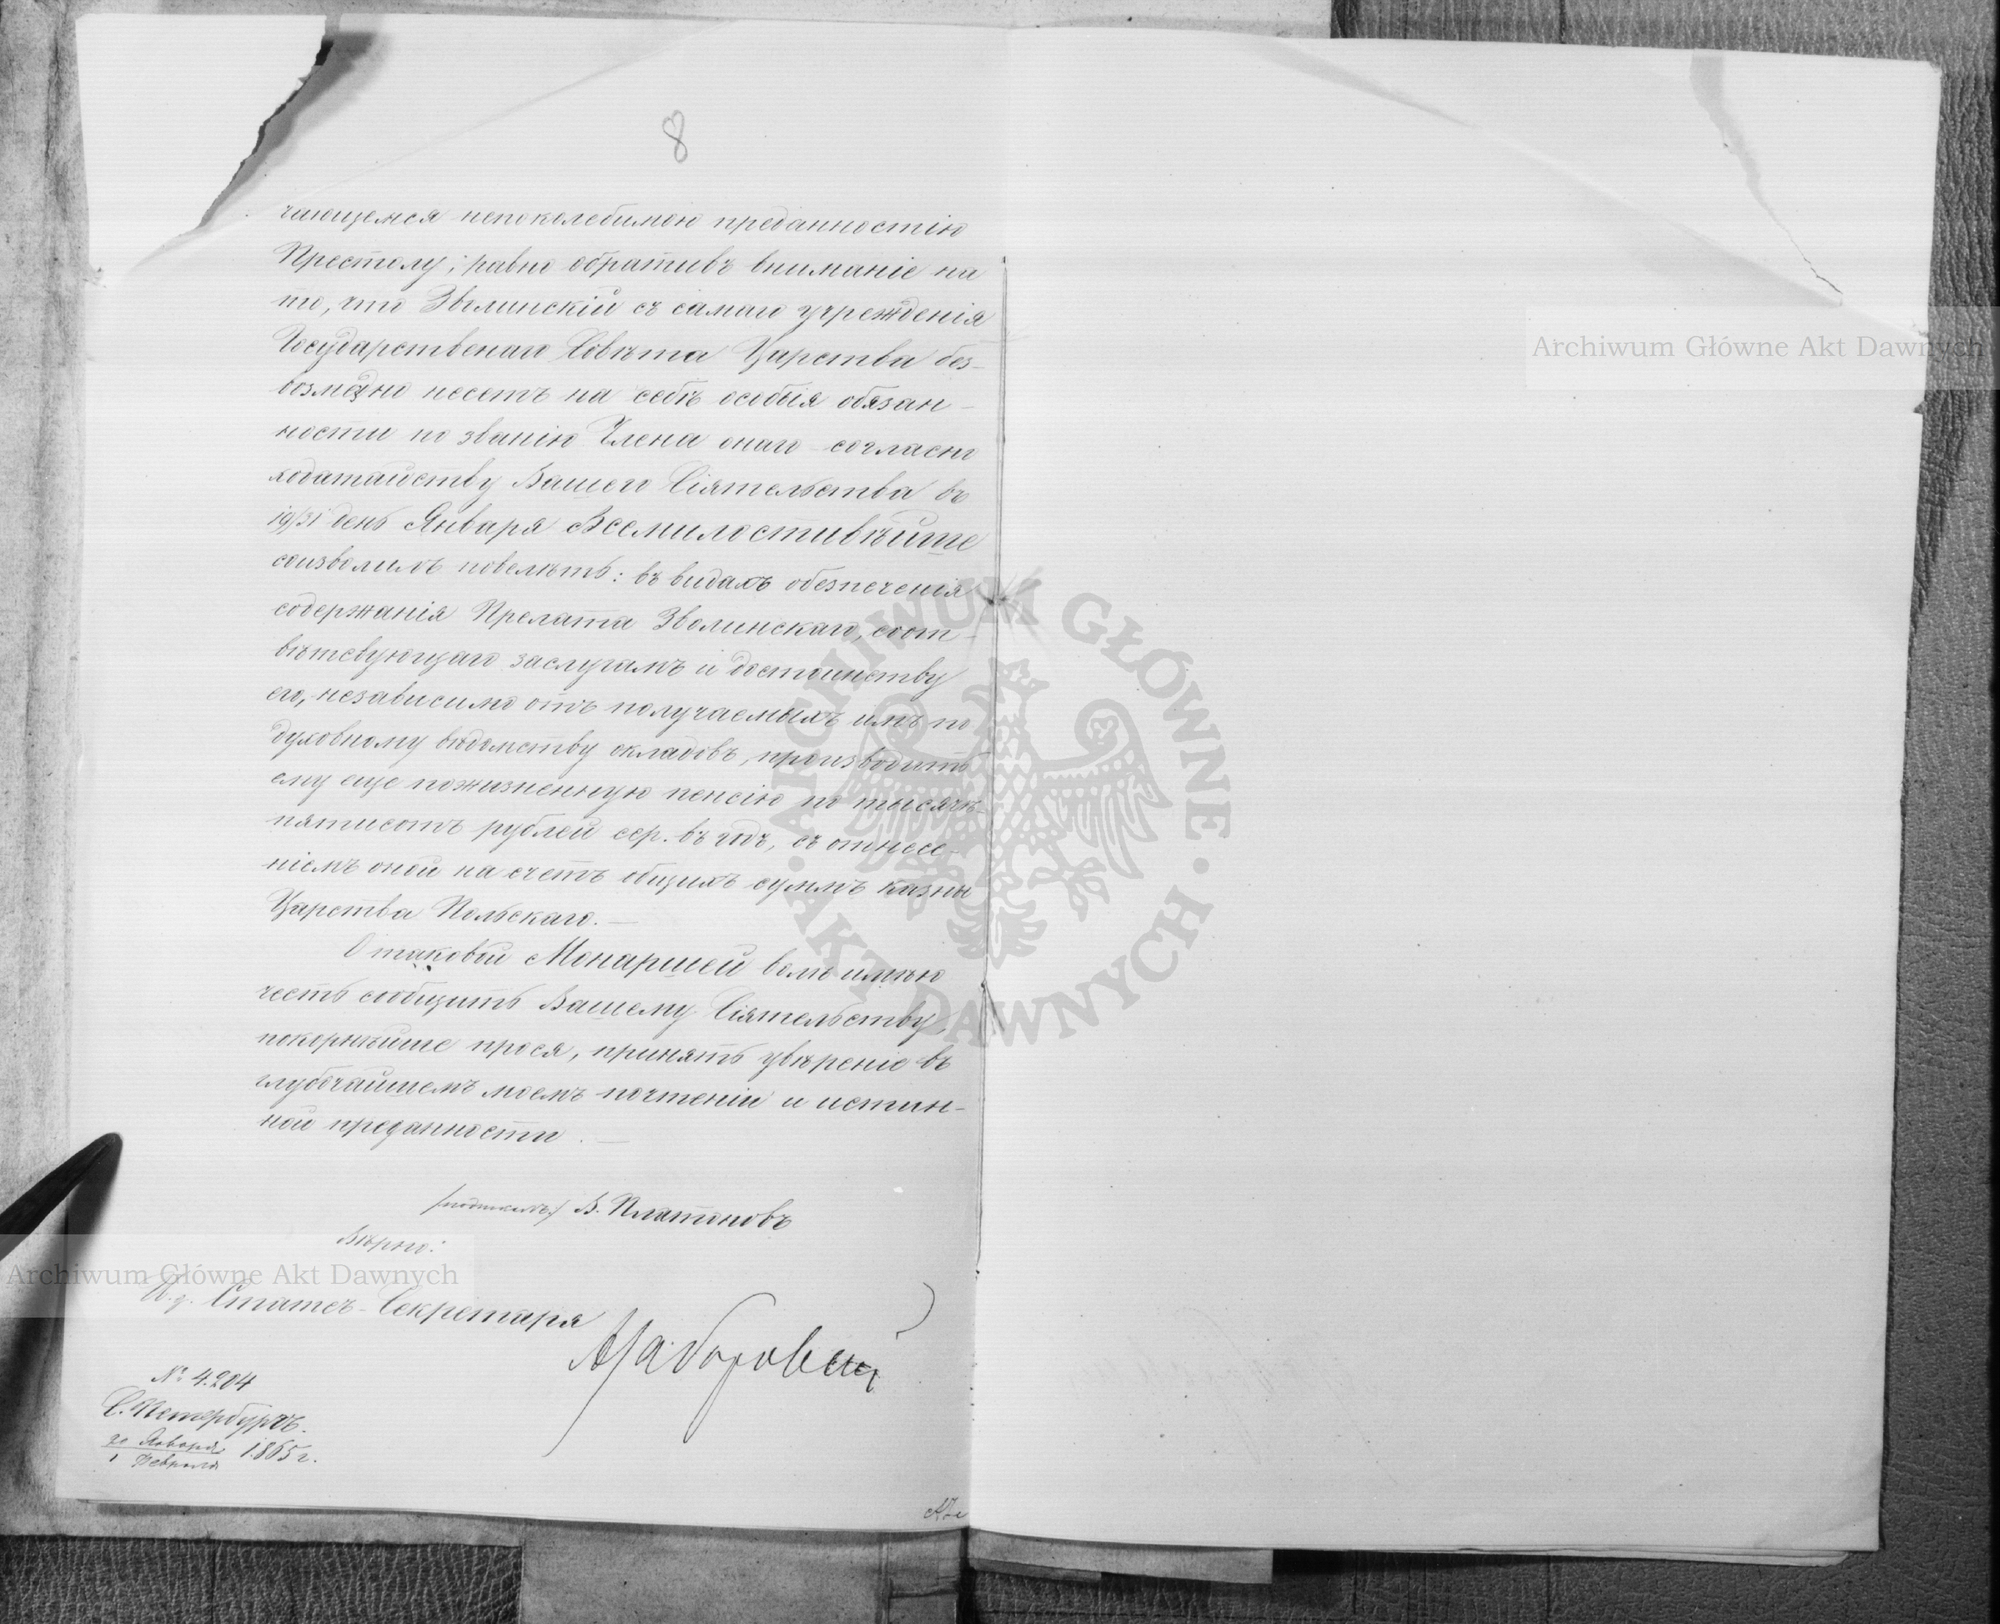 8
чающемся непоколебимою преданностію
Престолу; равно обративъ вниманіе на
то, что Зволинскій съ самаго учрежденія
Государственнаго Совѣта Царства без-
возмездно несетъ на себѣ особыя обязан-
ности по званію Члена онаго согласно
ходатайству Вашего Сіятельства въ
19/31 день Января Всемилостивѣйше
соизволилъ повелѣть: въ видахъ обезпеченія
содержанія Прелата Зволинскаго, соот-
вѣтствующаго заслугамъ и достоинству
его, независимо отъ получаемыхъ имъ по
духовному вѣдомству окладовъ, производить
ему еще пожизненную пенсію по тысячѣ
пятисотъ рублей сер. въ годъ, съ отнесе-
ніемъ оной на счетъ общихъ суммъ казны
Царства Польскаго. —
О таковой Монаршей волѣ имѣю
честь сообщить Вашему Сіятельству,
покорнѣйше прося, принять увѣреніе въ
глубочайшемъ моемъ почтеніи и истин-
ной преданности. —
/подписалъ/ В. Платоновъ
Вѣрно:
И. д. Статсъ-Секретаря
№ 4.204
С. Петербургъ.
20 Января
1 Февраля 1865 г.
Archiwum Główne Akt Dawnych
Archiwum Główne Akt Dawnych
ARCHIWUM GŁÓWNE
AKT DAWNYCH